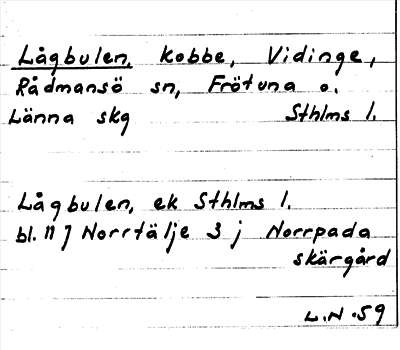 Lågbulen, kobbe, Vidinge,
Rådmansö sn, Frötuna o.
Länna skg Sthlms l.
Lågbulen, ek Sthlms l.
bl. 117 Norrtälje 3 j Norrpada
skärgård
L.N.59